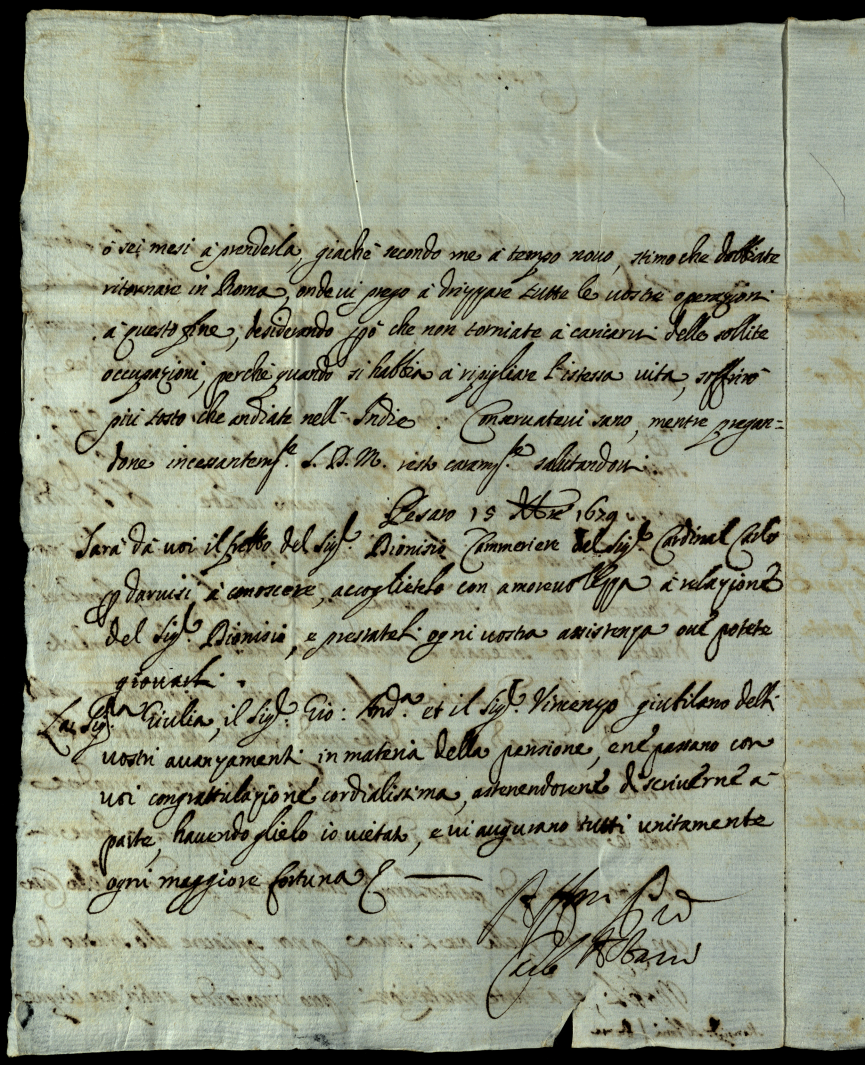 ò sei mesi à prenderla, giache secondo me à tempo novo, stimo che dobbiate
ritornare in Roma, onde vi prego à drizzare tutte le vostre operazioni
à questo fine, desiderando però che non torniate à caricarvi delle sollite
occupazioni, perche quando si habbia à ripigliare l'istessa vita, soffrirò
più tosto che andiate nell'Indie. Conservatevi sano, mentre pregan=
done incessantem.te S. D. M. resto caram.te salutandovi.
Pesaro 15 Xbre 1679.
Sarà dà voi il del Sig.r Dionisio Cammeriere del Sig.r Cardinal Carlo
p darvisi à conoscere, accoglietelo con amorevolezza à relazione
del Sig.r Dionisio, e prestateli ogni vostra assistenza ove potete
giovarli.
La Sig.ra Giulia, il Sig.r Gio: And.a et il Sig.r Vincenzo giubilano delli
vostri avanzamenti in materia della pensione, e ne passano con
voi congrattulazione cordialissima, astenendosene di scriverne à
parte, havendoglielo io vietato, e vi augurano tutti unitamente
ogni maggiore fortuna